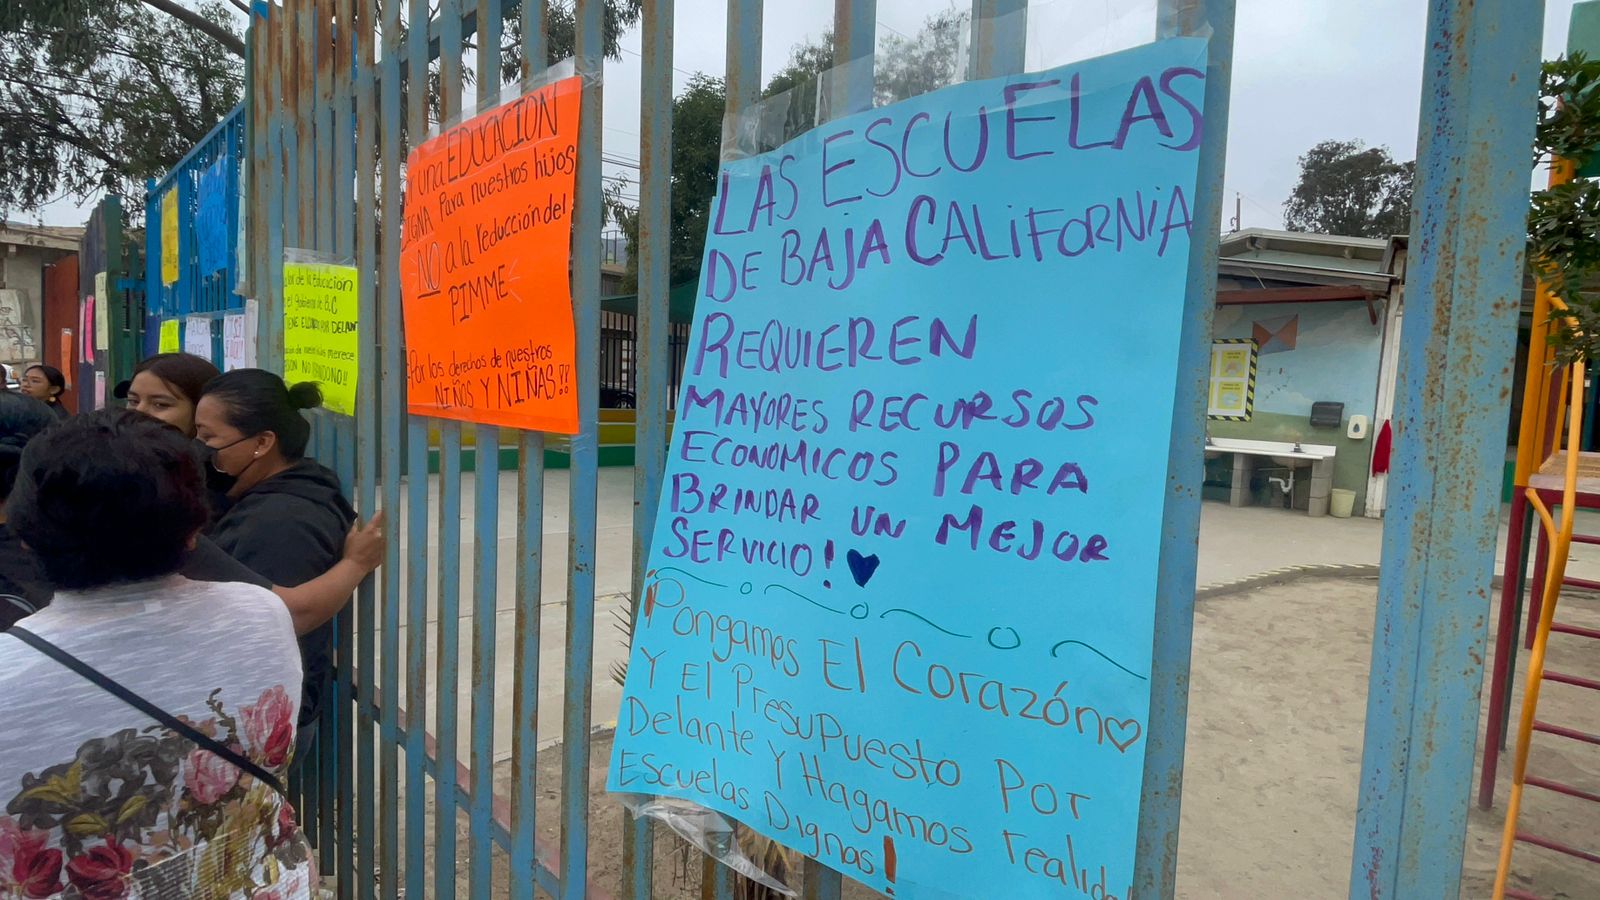 UNA EDUCACION
DIGNA Para nuestros hijos
NO a la reducción del
PIMME
Por los derechos de nuestros
NIÑOS Y NIÑAS!!
de la Educación
el gobierno de B.C
TIENE EL CORAZÓN POR DELANTE
merece
NO ABANDONO!!
LAS ESCUELAS
DE BAJA CALIFORNIA
REQUIEREN
MAYORES RECURSOS
ECONOMICOS PARA
BRINDAR UN MEJOR
SERVICIO!
¡Pongamos El Corazón
Y El Presupuesto Por
Delante Y Hagamos realidad
Escuelas Dignas!